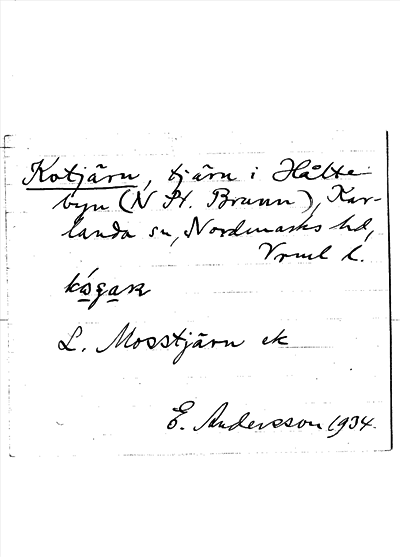 Kotjärn, tjärn i Hålte-
byn (N St. Brunn), Kar-
landa sn, Nordmarks hd,
Vrml l.
L. Mosstjärn ek
E. Andersson 1934.